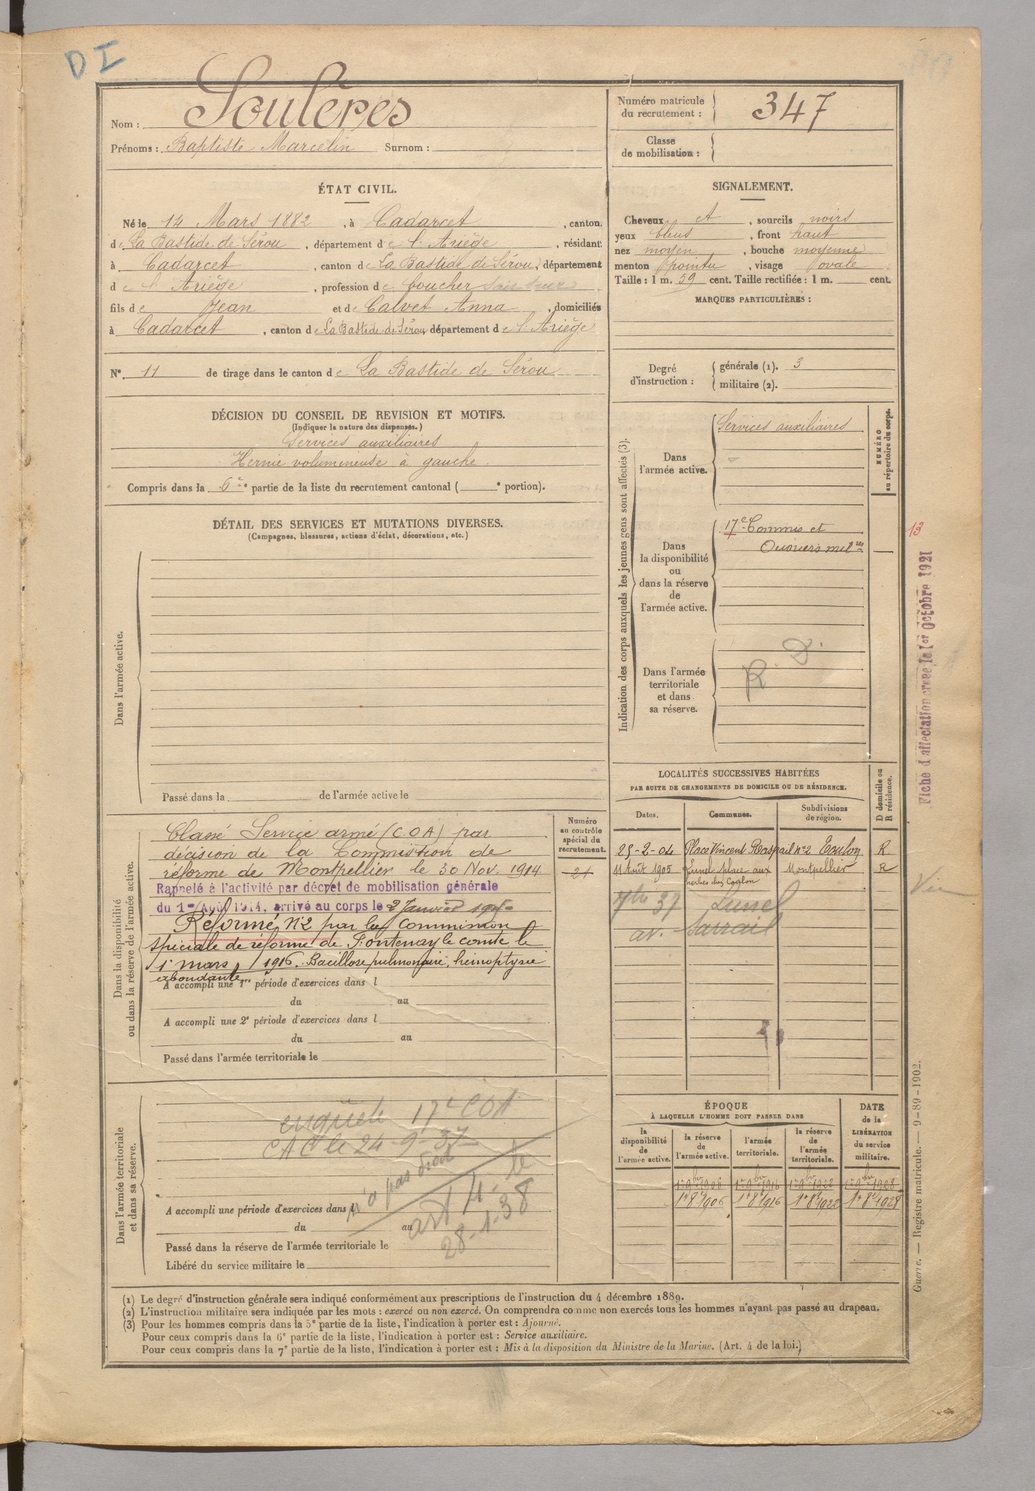 DI
Nom : Soulères
Prénoms : Baptiste Marcelin Surnom :
Numéro matricule du recrutement : 347
Classe de mobilisation :
ÉTAT CIVIL.
Né le 14 Mars 1882, à Cadarcet, canton
de La Bastide de Sérou, département de l'Ariège, résidant
à Cadarcet, canton de La Bastide de Sérou, département
de l'Ariège, profession de boucher
fils de Jean et de Calvet Anna, domiciliés
à Cadarcet, canton de La Bastide de Sérou département de l'Ariège
N° 11 de tirage dans le canton de La Bastide de Sérou
SIGNALEMENT.
Cheveux et, sourcils noirs
yeux bleus, front haut
nez moyen, bouche moyenne
menton pointu, visage ovale
Taille : 1 m. 59 cent. Taille rectifiée : 1 m. cent.
MARQUES PARTICULIÈRES :
Degré d'instruction : générale (1). 3
militaire (2).
DÉCISION DU CONSEIL DE REVISION ET MOTIFS.
(Indiquer la nature des dispenses.)
Services auxiliaires
Hernie volumineuse à gauche
Compris dans la 6e partie de la liste du recrutement cantonal ( e portion).
DÉTAIL DES SERVICES ET MUTATIONS DIVERSES.
(Campagnes, blessures, actions d'éclat, décorations, etc.)
Dans l'armée active.
Passé dans la de l'armée active le
Indication des corps auxquels les jeunes gens sont affectés (3).
NUMÉRO au répertoire du corps.
Dans l'armée active.
Services auxiliaires
Dans la disponibilité ou dans la réserve de l'armée active.
17e Commis et
Ouvriers mil res
Dans l'armée territoriale et dans sa réserve.
R. D.
13
Fiche d'affectation créée le 1er Octobre 1921
Dans la disponibilité ou dans la réserve de l'armée active.
Numéro au contrôle spécial du recrutement.
21
Classé Service armé (COA) par
décision de la Commission de
réforme de Montpellier le 30 Nov. 1914
Rappelé à l'activité par décret de mobilisation générale
du 1er Août 1914, arrivé au corps le 2 Janvier 1915
Réformé N°2 par la Commission
spéciale de réforme de Fontenay le comte le
1er mars 1916. Bacillose pulmonaire, hémoptysie
abondante
A accompli une 1re période d'exercices dans l
du au
A accompli une 2e période d'exercices dans l
du au
Passé dans l'armée territoriale le
LOCALITÉS SUCCESSIVES HABITÉES
PAR SUITE DE CHANGEMENTS DE DOMICILE OU DE RÉSIDENCE.
Dates. Communes. Subdivisions de région. D domicile ou R résidence.
25-2-04 Place Vincent Raspail n°2 Toulon R
11 Août 1905 Lunel place aux Montpellier R
herbes chez
37 Lunel
av. Sarrail
Dans l'armée territoriale et dans sa réserve.
enquête 17e COA
CAC le 24-9-37
n'a pas
art 4 le
28-1-38
A accompli une période d'exercices dans l
du au
Passé dans la réserve de l'armée territoriale le
Libéré du service militaire le
ÉPOQUE
À LAQUELLE L'HOMME DOIT PASSER DANS
DATE de la LIBÉRATION du service militaire.
la disponibilité de l'armée active. la réserve de l'armée active. l'armée territoriale. la réserve de l'armée territoriale.
1er 8e 1906 1er 8e 1916 1er 8e 1922 1er 8e 1928
Guerre. — Registre matricule. — 9-89-1902.
(1) Le degré d'instruction générale sera indiqué conformément aux prescriptions de l'instruction du 4 décembre 1889.
(2) L'instruction militaire sera indiquée par les mots : exercé ou non exercé. On comprendra comme non exercés tous les hommes n'ayant pas passé au drapeau.
(3) Pour les hommes compris dans la 5e partie de la liste, l'indication à porter est : Ajourné.
Pour ceux compris dans la 6e partie de la liste, l'indication à porter est : Service auxiliaire.
Pour ceux compris dans la 7e partie de la liste, l'indication à porter est : Mis à la disposition du Ministre de la Marine. (Art. 4 de la loi.)